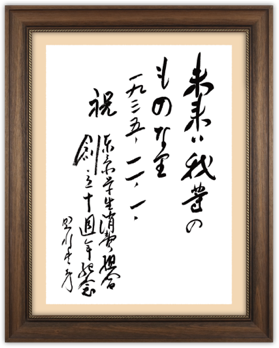 未来は我等の
ものなり
一九三五、一一、一、
祝
東京学生消費組合
創立十週年記念